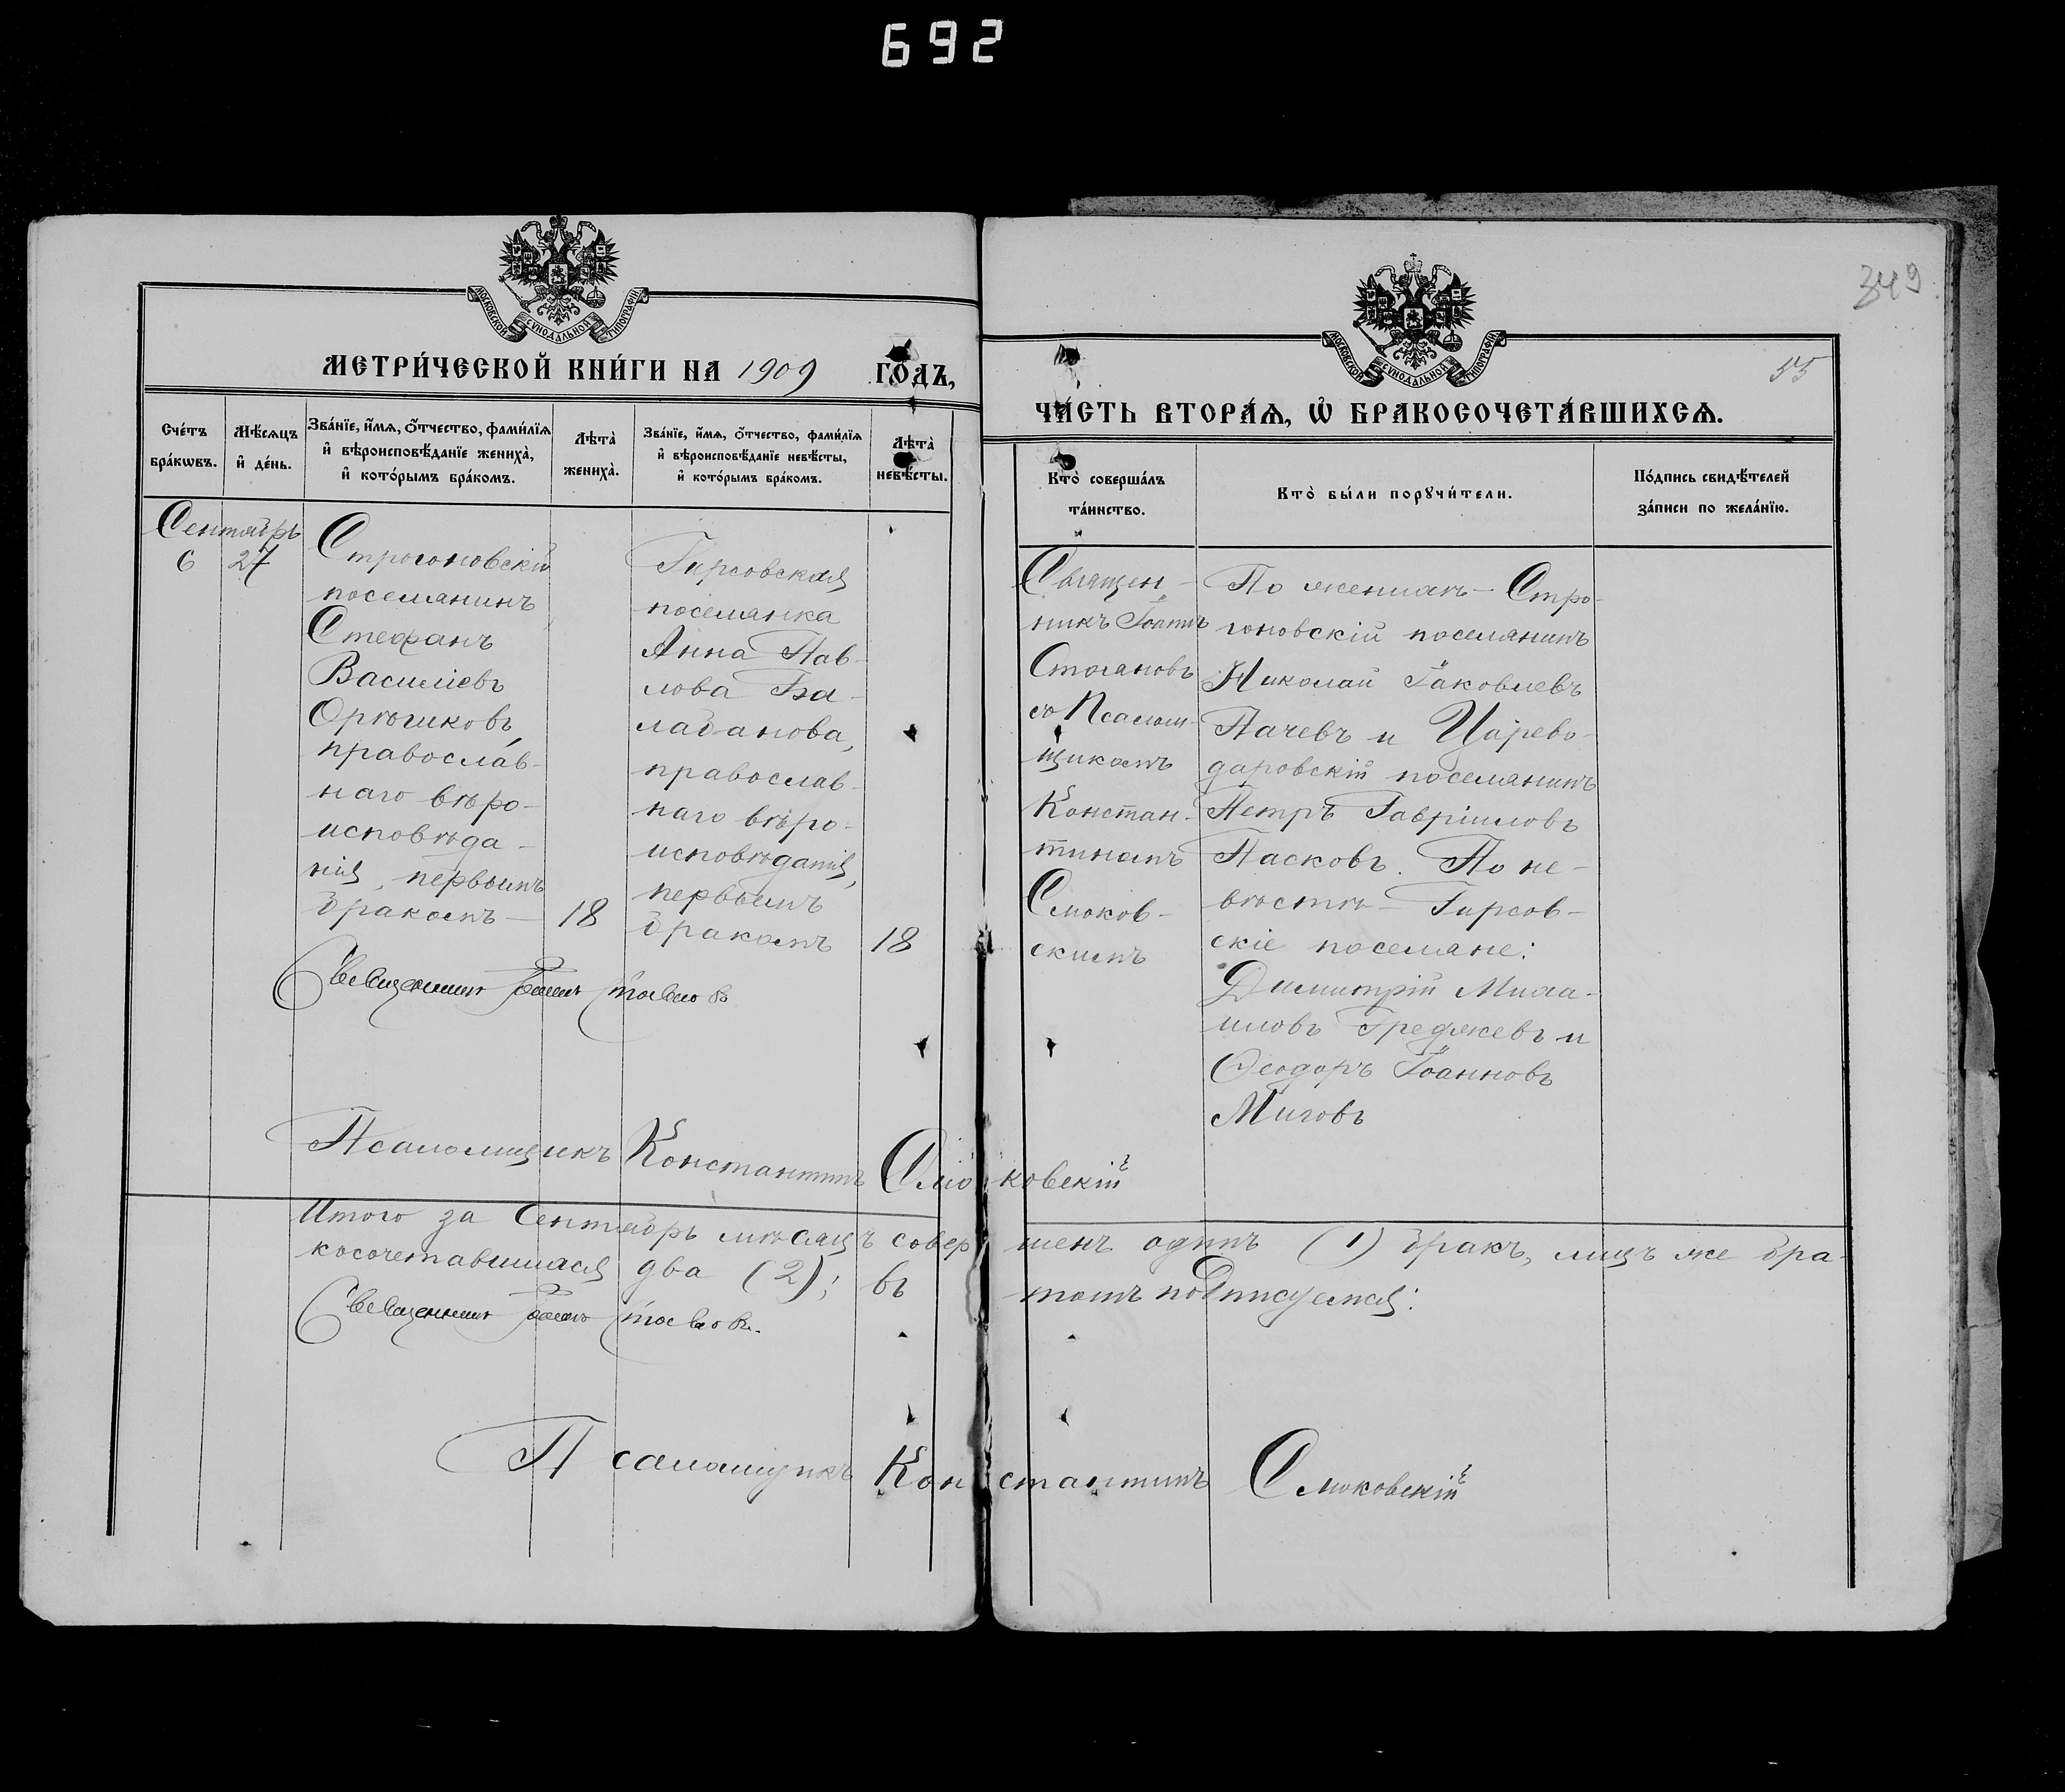 692
349
МОСКОВСКОЙ СѴНОДАЛЬНОЙ ТИПОГРАФІИ
МЕТРИ́ЧЕСКОЙ КНИ́ГИ НА 1909 ГОДЪ,
Сче́тъ бра́кωвъ.
Мѣ́сяцъ и҆ де́нь.
Зва́нїе, и҆́мѧ, ѻ҆́тчество, фами́лїѧ
и҆ вѣроисповѣ́данїе жениха̀,
и҆ кото́рымъ бра́комъ.
Лѣта̀
жениха̀.
Зва́нїе, и҆́мѧ, ѻ҆́тчество, фами́лїѧ
и҆ вѣроисповѣ́данїе невѣ́сты,
и҆ кото́рымъ бра́комъ.
Лѣта̀
невѣ́сты.
Сентябрь
6
27
Строгоновскій
поселянинъ,
Стефанъ
Василіевъ
Орѣшковъ,
православ-
наго вѣро-
исповѣда-
нія, первымъ
бракомъ —
18
Гирсовская
поселянка
Анна Пав-
лова Ба-
лабанова,
православ-
наго вѣро-
исповѣданія,
первымъ
бракомъ
18
МОСКОВСКОЙ СѴНОДАЛЬНОЙ ТИПОГРАФІИ
55
ЧА́СТЬ ВТОРА́Ѧ, Ѡ҆ БРАКОСОЧЕТА́ВШИХСѦ.
Кто̀ соверша́лъ
та́инство.
Кто̀ бы́ли порꙋчи́тели.
По́дпись свидѣ́телей
за́писи по жела́нїю.
Священ-
никъ Іоаннъ
Стояновъ
съ Псалом-
щикомъ
Констан-
тиномъ
Смоков-
скимъ
По женихѣ — Стро-
гоновскій поселянинъ
Николай Іаковлевъ
Пачевъ и Царево-
даровскій поселянинъ
Петръ Гавріиловъ
Пасковъ. По не-
вѣстѣ — Гирсов-
скіе поселяне:
Димитрій Миха-
иловъ Греджевъ и
Ѳеодоръ Іоанновъ
Миговъ
Священникъ Іоаннъ Стояновъ
Псаломщикъ Константинъ Смоковскій
Итого за Сентябрь мѣсяцъ совершенъ одинъ (1) бракъ, лицъ же бра-
косочетавшихся два (2); въ томъ подписуемся:
Священникъ Іоаннъ Стояновъ.
Псаломщикъ Константинъ Смоковскій